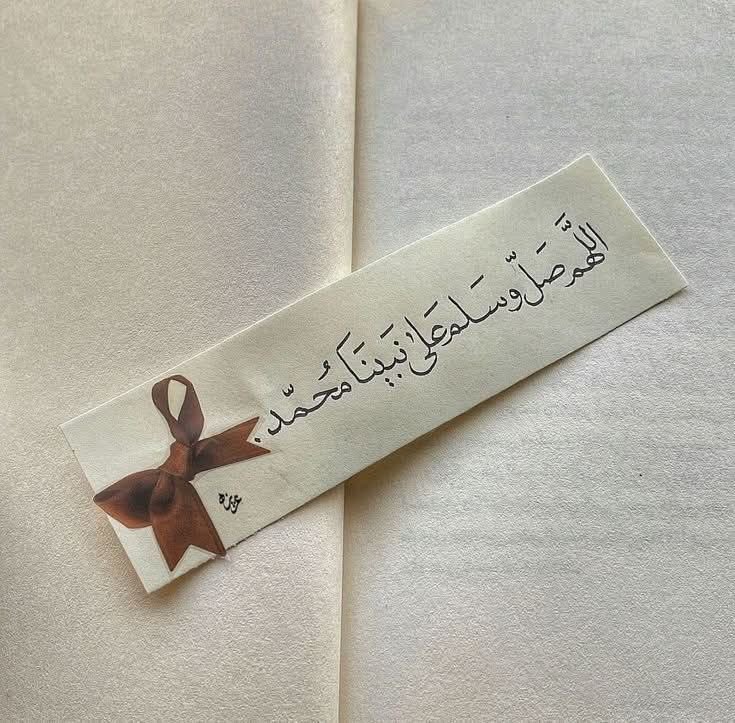 اللَّهم صَل وّسَلم عَلى نبَينَا مُحَمّد.